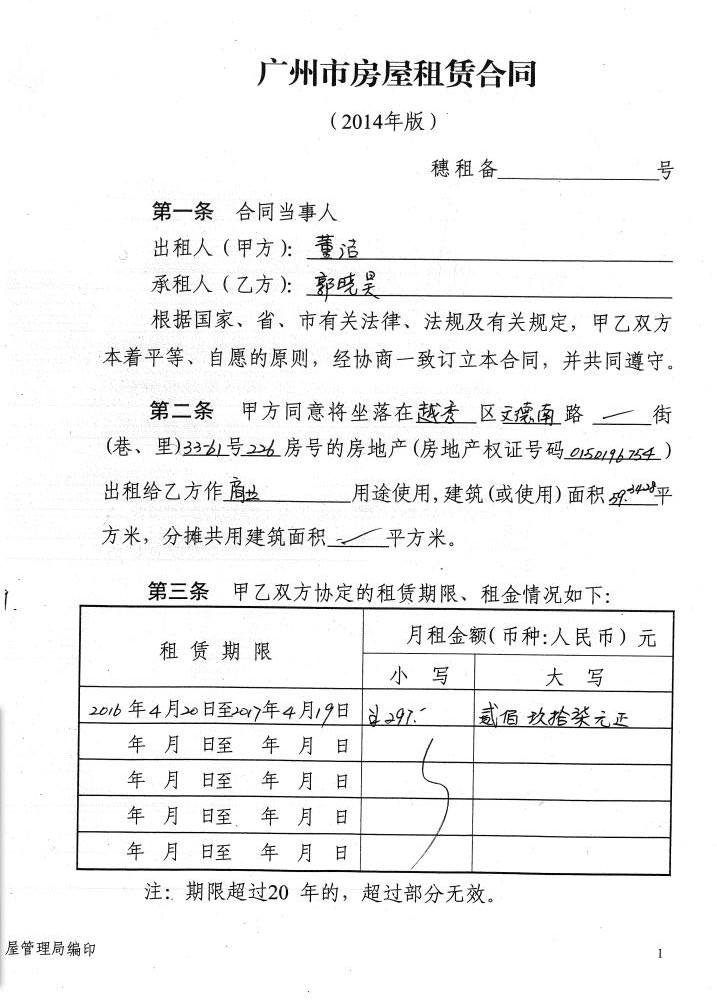 广州市房屋租赁合同
（2014年版）
穗租备 号
第一条 合同当事人
出租人（甲方）：董洁
承租人（乙方）：郭晓昊
根据国家、省、市有关法律、法规及有关规定，甲乙双方
本着平等、自愿的原则，经协商一致订立本合同，并共同遵守。
第二条 甲方同意将坐落在越秀区文德南路 一 街
(巷、里)33-61号226房号的房地产(房地产权证号码0150196754)
出租给乙方作商业 用途使用，建筑(或使用)面积59.3428平
方米，分摊共用建筑面积 平方米。
第三条 甲乙双方协定的租赁期限、租金情况如下：
租赁期限 月租金额(币种:人民币)元
小写 大写
2016年4月20日至2017年4月19日 297.- 贰佰玖拾柒元正
年 月 日至 年 月 日
年 月 日至 年 月 日
年 月 日至 年 月 日
年 月 日至 年 月 日
注：期限超过20 年的，超过部分无效。
屋管理局编印 1